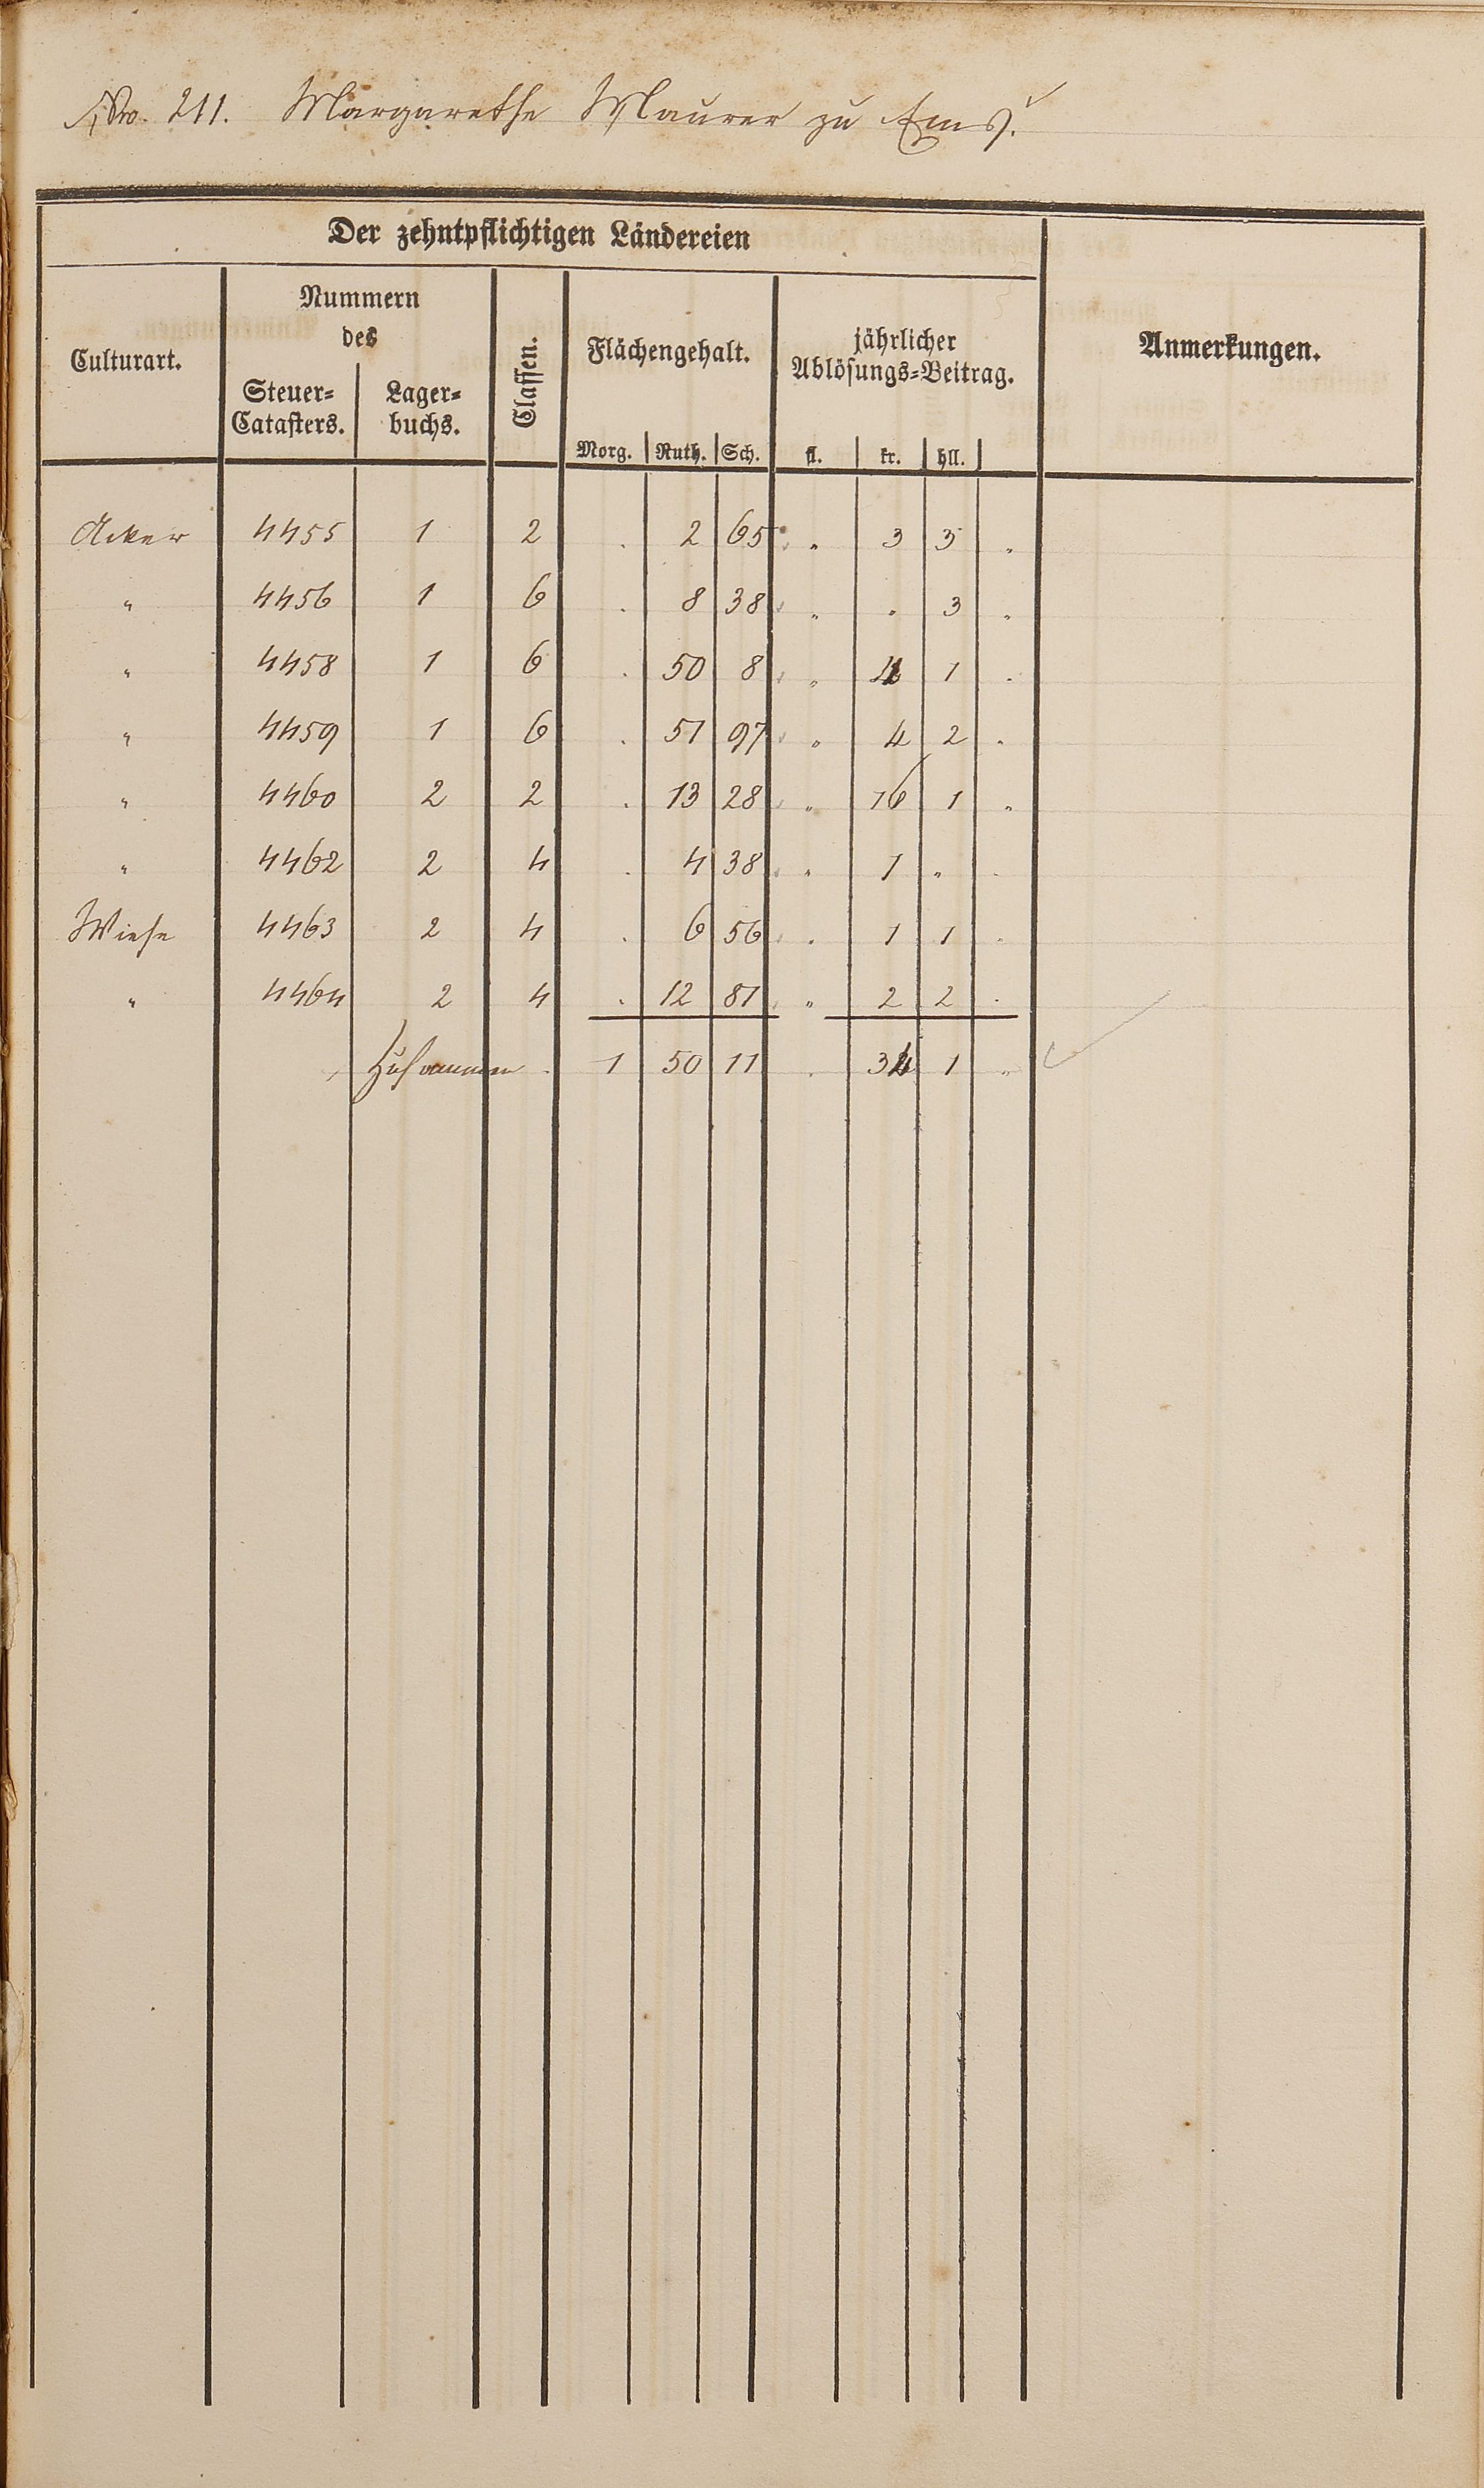 Nro. 211. Margarethe Maurer zu Ems.
Der zehntpflichtigen Ländereien
Culturart.
Nummern
des
Steuer-
Catasters.
Lager-
buchs.
Classen.
Flächengehalt.
Morg. Ruth. Sch.
jährlicher
Ablösungs-Beitrag.
fl. kr. hll.
Anmerkungen.
Acker 4455 1 2 . 2 65 „ 3 3 „
„ 4456 1 6 . 8 38 „ „ 3 „
„ 4458 1 6 . 50 8 „ 4 1 .
„ 4459 1 6 . 51 97 „ 4 2 .
„ 4460 2 2 . 13 28 „ 16 1 „
„ 4462 2 4 . 4 38 „ 1 „ .
Wiese 4463 2 4 . 6 56 . 1 1 .
„ 4464 2 4 . 12 81 „ 2 2 .
Zusammen . 1 50 11 . 34 1 „